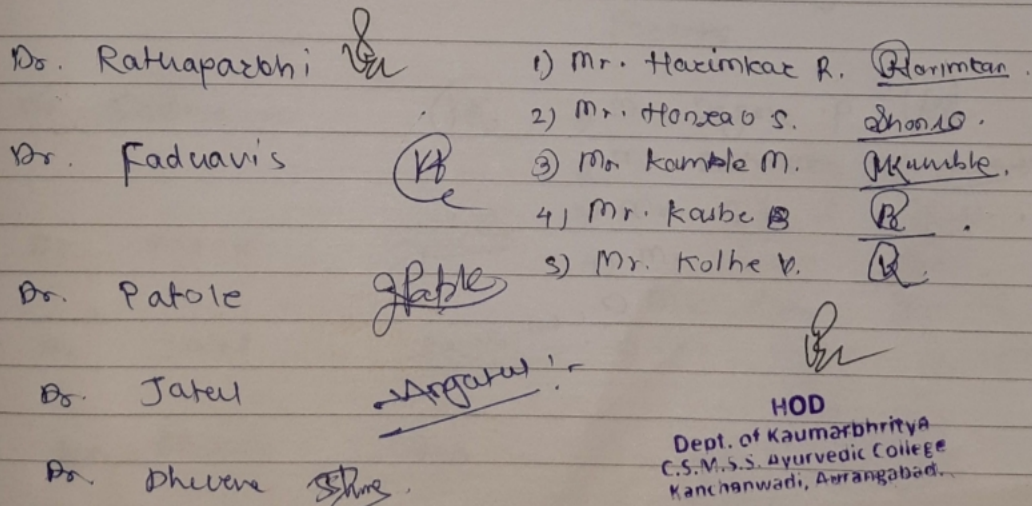 Dr. Rathaparkhi
Dr. Fadnavis
Dr. Patole
Dr. Jatul
Dr. Dhevene
1) Mr. Harimkar R. Harimkar
2) Mr. Honrao S.
3) Mr. Kamble M. MKamble.
4) Mr. Kasbe B
5) Mr. Kolhe V.
HOD
Dept. of Kaumarbhritya
C.S.M.S.S. Ayurvedic College
Kanchanwadi, Aurangabad.